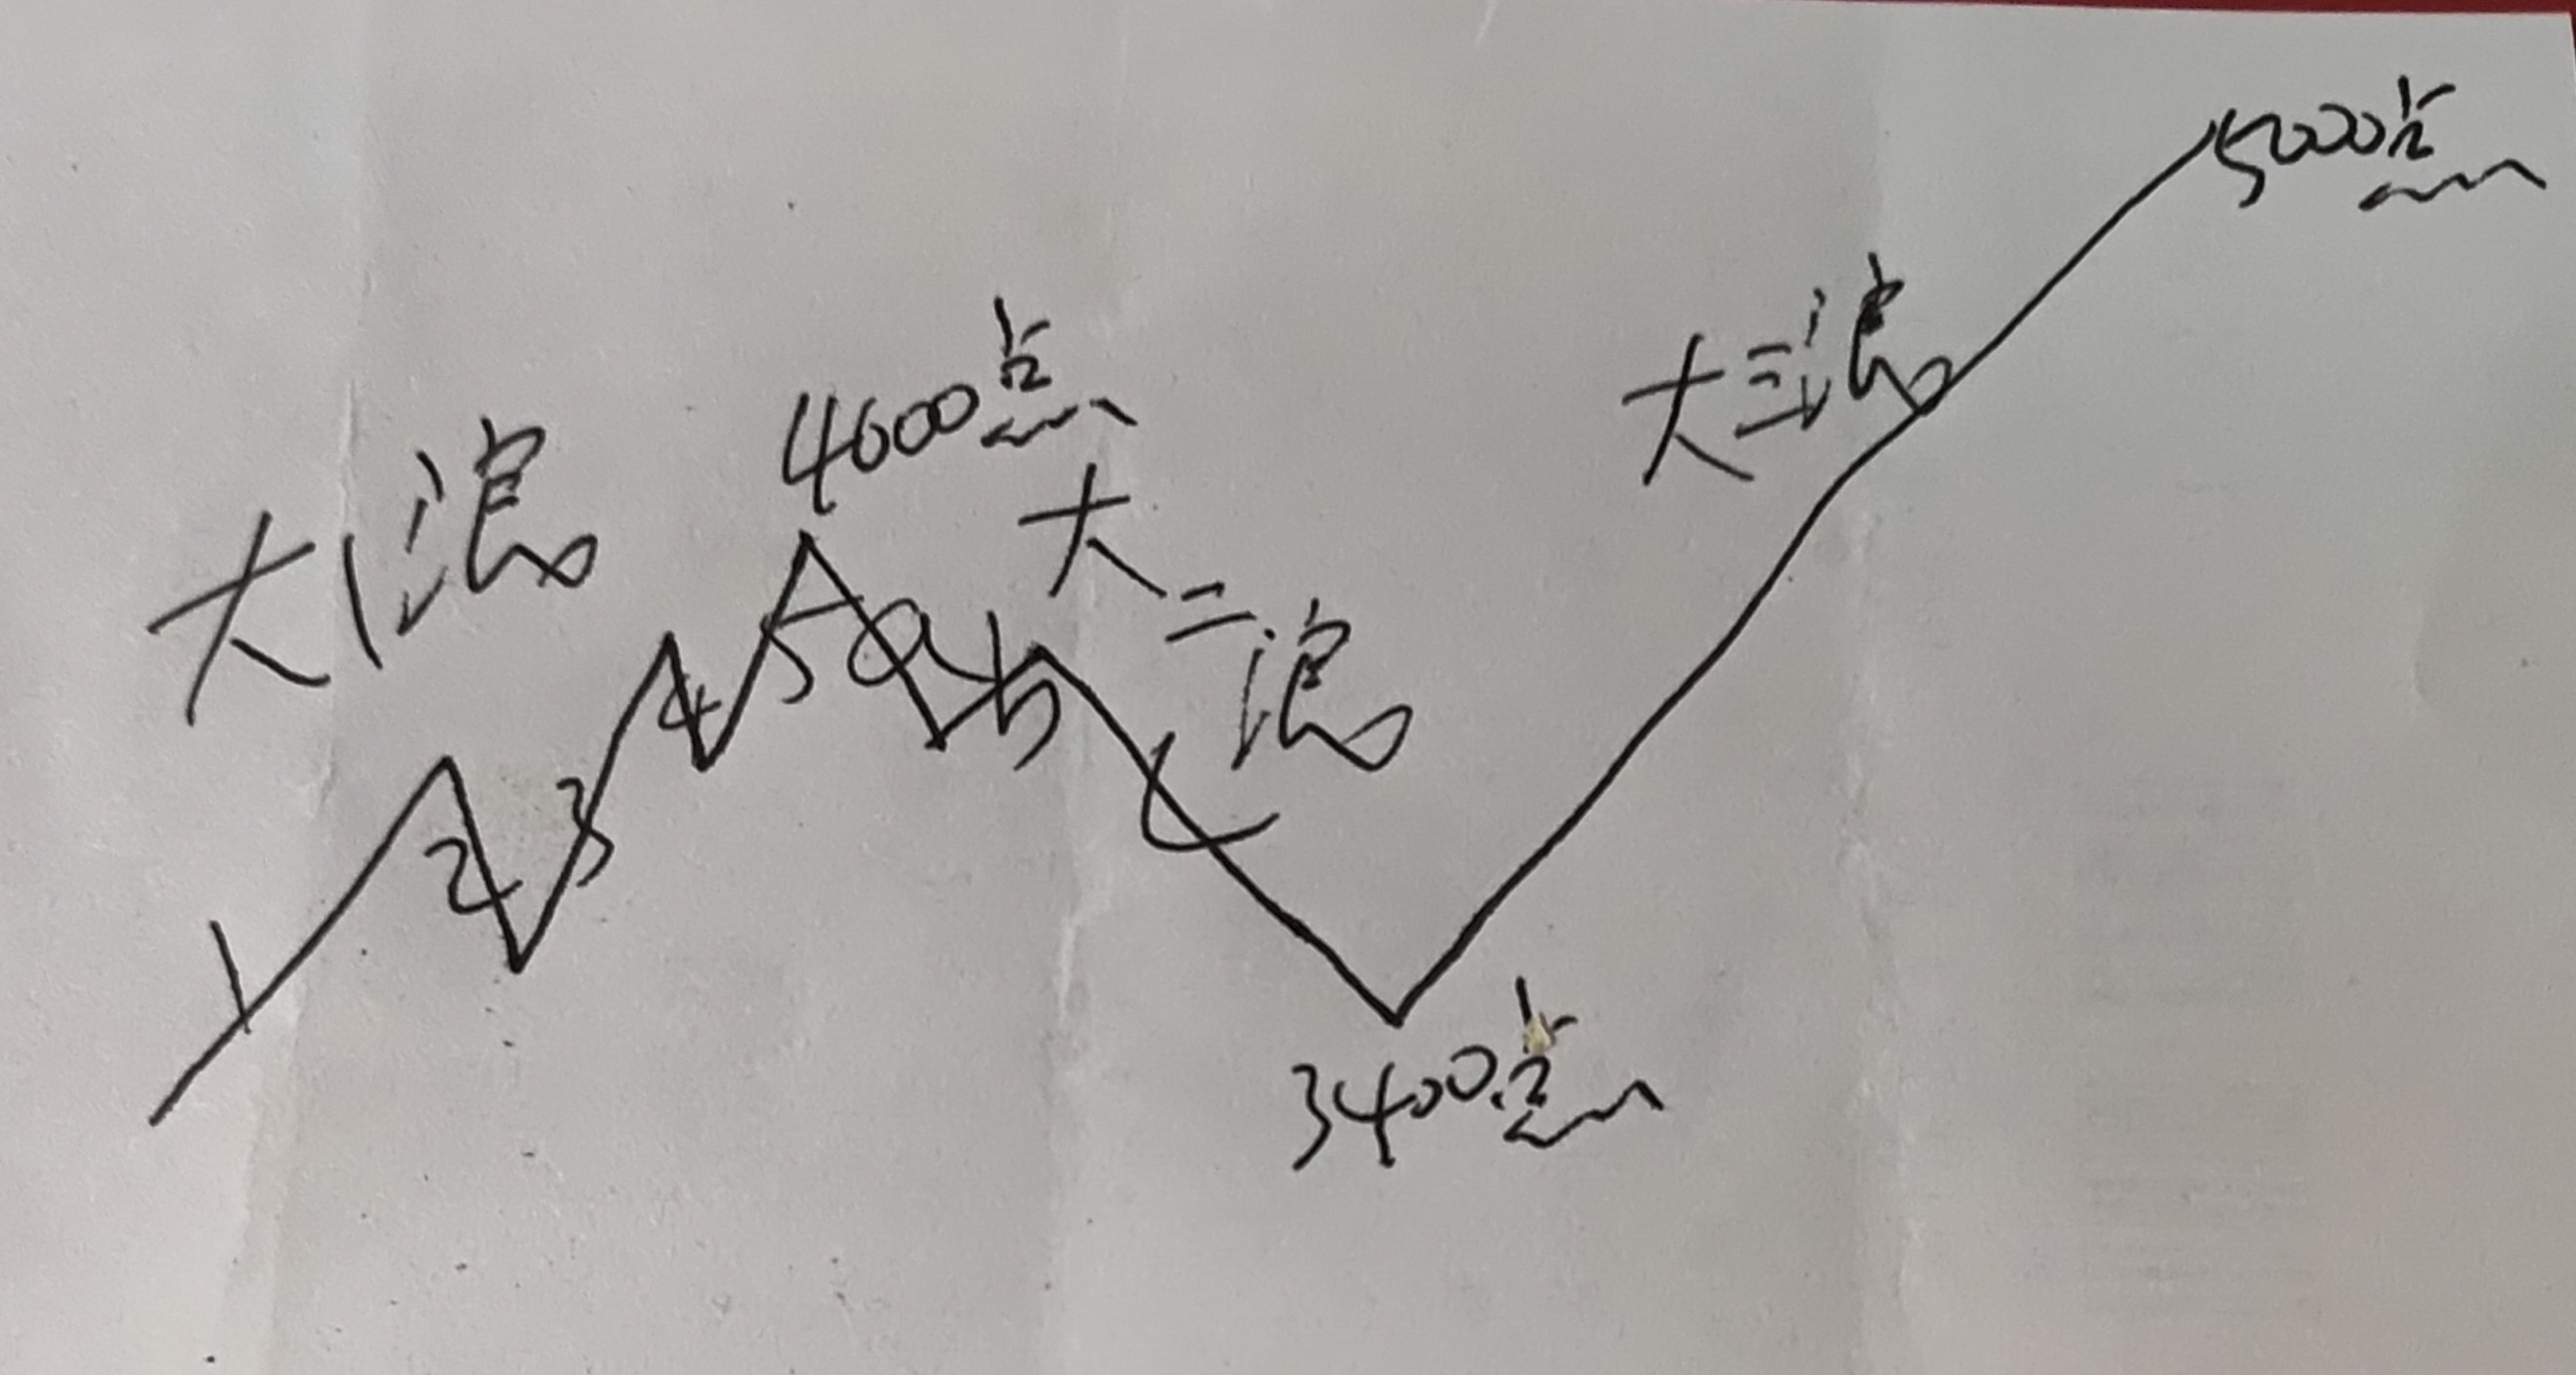 大1浪
4000点
大二浪
大三浪
5000点
1
2
3
4
5
a
b
c
3400点